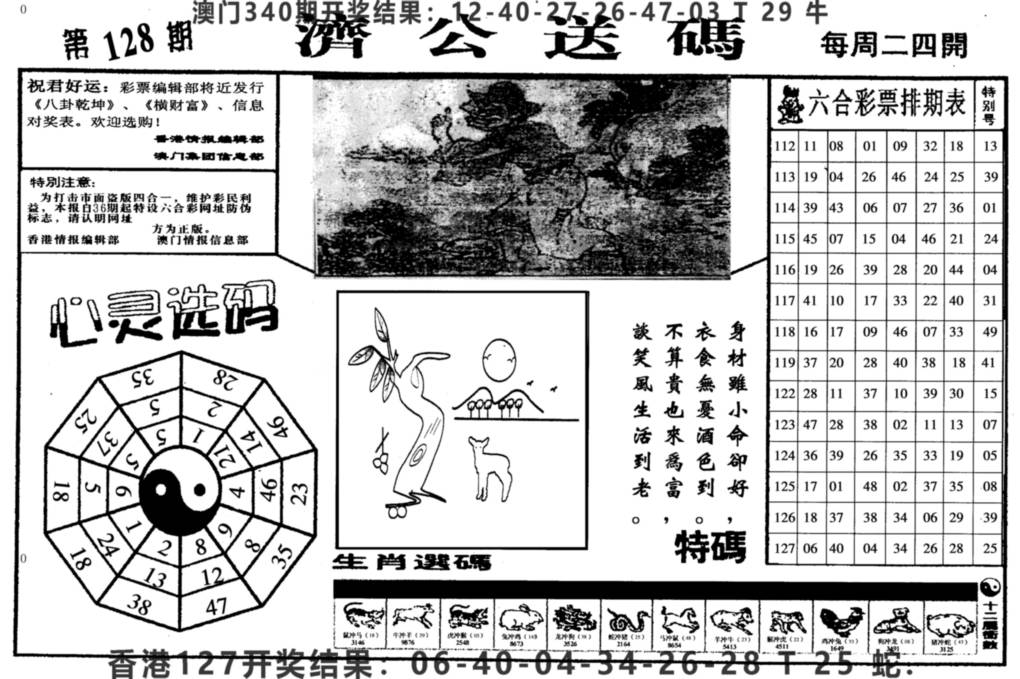 0
澳门340期开奖结果：12-40-27-26-47-03 T 29 牛
第128期
濟公送碼
每周二四開
祝君好运：彩票编辑部将近发行
《八卦乾坤》、《横财富》、信息
对奖表。欢迎选购！
香港情报编辑部
澳门集团信息部
特别注意：
为打击市面盗版四合一，维护彩民利
益，本报自36期起特设六合彩网址防伪
标志，请认明网址
方为正版。
香港情报编辑部 澳门情报信息部
六合彩票排期表 特别号
112 11 08 01 09 32 18 13
113 19 04 26 46 24 25 39
114 39 43 06 07 27 36 01
115 45 07 15 04 46 21 24
116 19 26 39 28 20 44 04
117 41 10 17 33 22 40 31
118 16 17 09 46 07 33 49
119 37 20 28 40 38 18 41
122 28 11 37 10 39 30 15
123 47 28 38 02 11 13 07
124 36 39 26 35 33 19 05
125 17 01 48 02 37 35 08
126 18 37 38 34 06 29 39
127 06 40 04 34 26 28 25
心灵选码
35 28 46 23 35 47 38 18 18 25
5 2 14 46 8 12 13 24 5 37
5 1 21 4 9 8 2 1 6 5
身材雖小命卻好，
衣食無憂酒色到。
不算貴也來爲富，
談笑風生活到老。
特碼
生肖選碼
0
十二屬衝數
鼠冲马
3146
牛冲羊
9876
虎冲猴
2548
兔冲鸡
8673
龙冲狗
3526
蛇冲猪
2164
马冲鼠
8654
羊冲牛
5413
猴冲虎
4511
鸡冲兔
1649
狗冲龙
猪冲蛇
3125
香港127开奖结果：06-40-04-34-26-28 T 25 蛇.